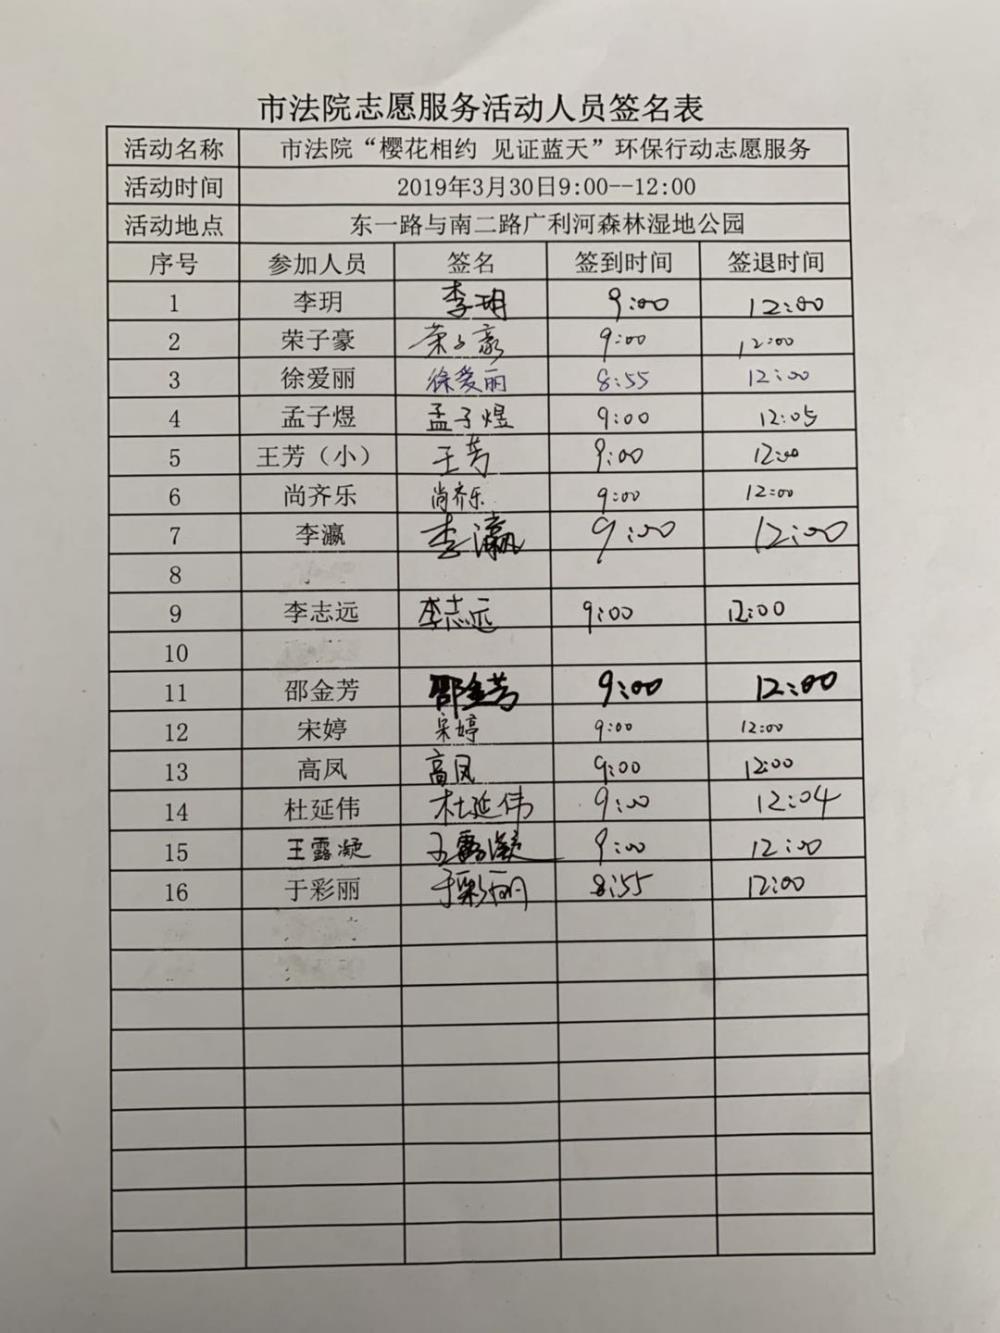 市法院志愿服务活动人员签名表
活动名称 市法院“樱花相约 见证蓝天”环保行动志愿服务
活动时间 2019年3月30日9:00--12:00
活动地点 东一路与南二路广利河森林湿地公园
序号 参加人员 签名 签到时间 签退时间
1 李玥 李玥 9:00 12:00
2 荣子豪 荣子豪 9:00 12:00
3 徐爱丽 徐爱丽 8:55 12:00
4 孟子煜 孟子煜 9:00 12:05
5 王芳（小） 王芳 9:00 12:00
6 尚齐乐 尚齐乐 9:00 12:00
7 李瀛 李瀛 9:00 12:00
8
9 李志远 李志远 9:00 12:00
10
11 邵金芳 邵金芳 9:00 12:00
12 宋婷 宋婷 9:00 12:00
13 高凤 高凤 9:00 12:00
14 杜延伟 杜延伟 9:00 12:04
15 王露凝 王露凝 9:00 12:00
16 于彩丽 于彩丽 8:55 12:00